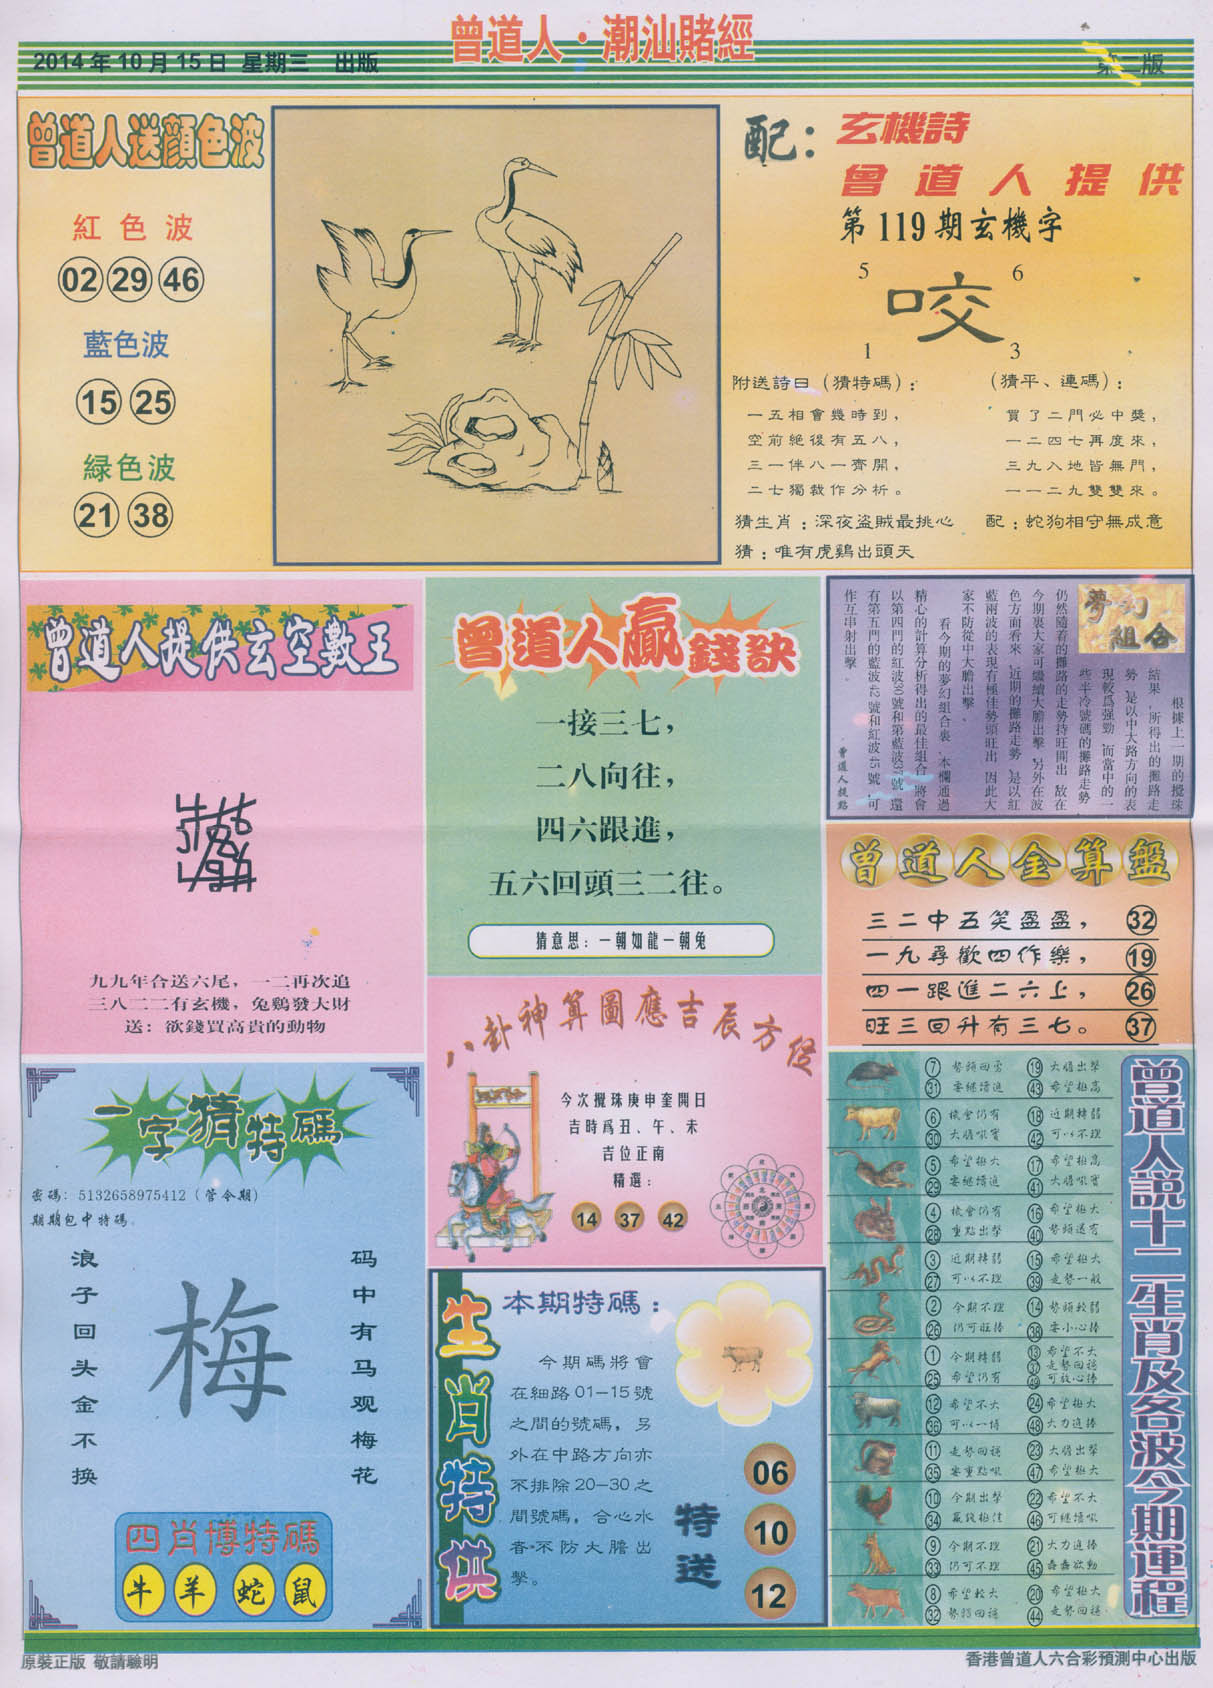 曾道人·潮汕賭經
2014年10月15日 星期三 出版
第二版
曾道人送顔色波
紅色波
02 29 46
藍色波
15 25
緑色波
21 38
配：玄機詩
曾道人提供
第119期玄機字
5 6
咬
1 3
附送詩曰（猜特碼）：
一五相會幾時到，
空前絶後有五八，
三一伴八一齊開，
二七獨裁作分析。
（猜平、連碼）：
買了二門必中獎，
一二四七再度來，
三九入地皆無門，
一一二九雙雙來。
猜生肖：深夜盗賊最挑心
配：蛇狗相守無成意
猜：唯有虎鷄出頭天
曾道人提供玄空數王
九九年合送六尾，一二再次追
三八二二有玄機，兔鷄發大財
送：欲錢買高貴的動物
曾道人贏錢訣
一接三七，
二八向往，
四六跟進，
五六回頭三二往。
猜意思：一朝如龍一朝兔
夢幻組合
根據上一期的攪珠
結果，所得出的攤路走
勢，是以中大路方向的表
現較爲强勁，而當中的一
些半冷號碼的攤路走勢
仍然隨着的攤路的走勢持旺開出，故在
今期裏大家可繼續大膽出擊，另外在波
色方面看來，近期的攤路走勢，是以紅
藍兩波的表現有極佳勢頭旺出，因此大
家不防從中大膽出擊、
看今期的夢幻組合裏，本欄通過
精心的計算分析得出的最佳組合，將會
以第四門的紅波30號和第藍波37號，還
有第五門的藍波42號和紅波45號，可
作互串射出擊。
曾道人提點
曾道人金算盤
三二中五笑盈盈， 32
一九尋歡四作樂， 19
四一跟進二六上， 26
旺三回升有三七。 37
八卦神算圖應吉辰方位
今次攪珠庚申奎開日
吉時爲丑、午、未
吉位正南
精選：
14 37 42
一字猜特碼
密碼：5132658975412（管令期）
期期包中特碼。
浪子回头金不换
梅
码中有马观梅花
四肖博特碼
牛 羊 蛇 鼠
生肖特供
本期特碼：
今期碼將會
在細路01-15號
之間的號碼，另
外在中路方向亦
不排除20-30之
間號碼，合心水
者不防大膽出
擊。
特送
06
10
12
曾道人説十二生肖及各波今期運程
7 勢頭回勇 19 大膽出擊
31 要繼續追 43 希望極高
6 機會仍有 18 近期轉弱
30 大膽吼實 42 可以不理
5 希望極大 17 希望極高
29 要繼續追 41 大膽吼實
4 機會仍有 16 希望極大
28 重點出擊 40 勢頭還有
3 近期轉弱 15 希望極大
27 可以不理 39 走勢一般
2 今期不理 14 勢頭較弱
26 仍可旺捧 38 要小心捧
1 今期轉弱 13 希望不大
25 希望仍有 37 走勢回穩
49 可放心捧
12 希望不大 24 希望極大
36 可以一博 48 大力追捧
11 走勢回穩 23 大膽出擊
35 要重點吼 47 希望極大
10 今期出擊 22 希望不大
34 贏錢極佳 46 可繼續吼
9 今期不理 21 大力追捧
33 仍可不理 45 蠢蠢欲動
8 希望較大 20 希望極大
32 勢頭回穩 44 走勢回穩
原裝正版 敬請驗明
香港曾道人六合彩預測中心出版